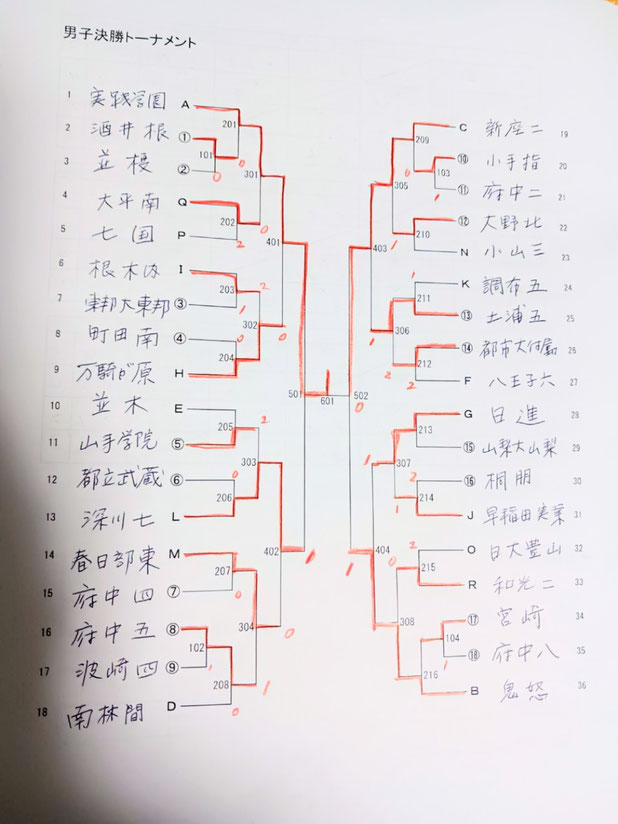 男子決勝トーナメント
1 実践学園 A
2 酒井根 ①
3 並榎 ②
4 大平南 Q
5 七国 P
6 根木内 I
7 東邦大東邦 ③
8 町田南 ④
9 万騎が原 H
10 並木 E
11 山手学院 ⑤
12 都立武蔵 ⑥
13 深川七 L
14 春日部東 M
15 府中四 ⑦
16 府中五 ⑧
17 波崎四 ⑨
18 南林間 D
101 201 0
0 301
202 2 0
203 2 401
1 302 0
204 0 0
205 2 501
0 303
206 0
402 1
207 0
102 1 304 0
208 0 1
601
C 新座二 19
⑩ 小手指 20
⑪ 府中二 21
⑫ 大野北 22
N 小山三 23
K 調布五 24
⑬ 土浦五 25
⑭ 都市大付属 26
F 八王子六 27
G 日進 28
⑮ 山梨大山梨 29
⑯ 桐朋 30
J 早稲田実業 31
O 日大豊山 32
R 和光二 33
⑰ 宮崎 34
⑱ 府中八 35
B 鬼怒 36
209 0 103 1
305
210 1 403
211 1 306 1
212 2 2
502 0
213 0 307 1
214 1
404 0 1
215 2
308 1
104 1
216 1